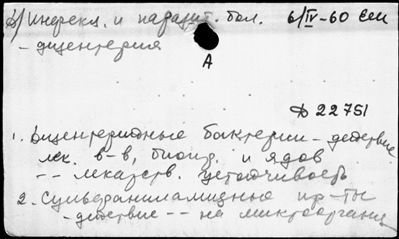 Д) Инфекц. и паразит. бол. 6/IV-60 Сен
- дизентерия
А
Д 22751
1. Дизентерийные бактерии - действие
лек. в-в, биопр. и ядов
- - лекарств. устойчивость
2. Сульфаниламидные пр-ты
- действие - - на микроорганизм